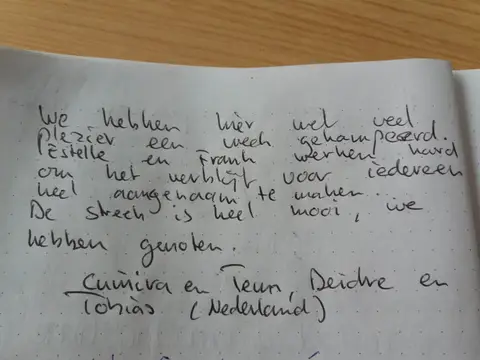 We hebben hier met veel
plezier een week gekampeerd.
Estelle en Frank werken hard
om het verblijf voor iedereen
heel aangenaam te maken.
De streek is heel mooi, we
hebben genoten.
en Teun, Deidre en
Tobias (Nederland)